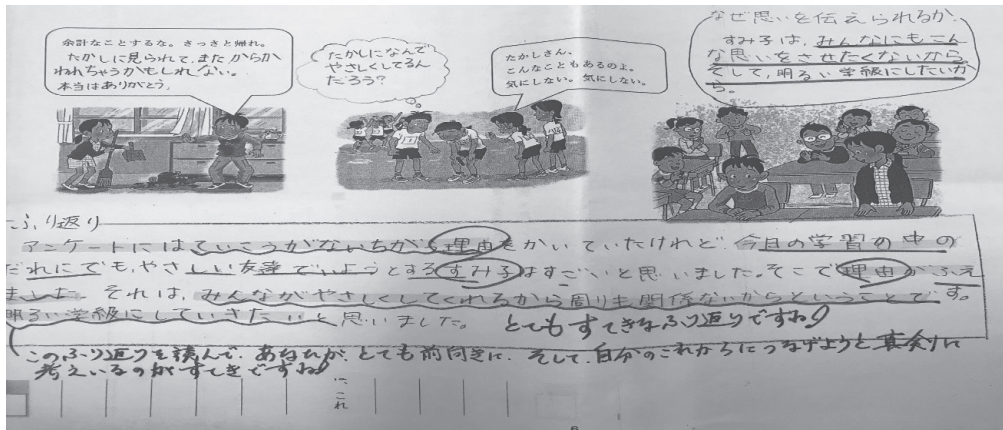 余計なことするな。さっさと帰れ。
たかしに見られて、またからか
われちゃうかもしれない。
本当はありがとう。
たかしになんで
やさしくしてるん
だろう?
たかしさん、
こんなこともあるのよ。
気にしない。気にしない。
なぜ思いを伝えられるか。
すみ子は、みんなにもこん
な思いをさせたくないから
そして、明るい学級にしたいか
ら。
ふり返り
アンケートにはていこうがないちがう理由をかいていたけれど、今日の学習の中の
だれにでも、やさしい友達でいようとするすみ子はすごいと思いました。そこで理由がふえ
ました。それは、みんながやさしくしてくれるから周りも関係ないからということです。
明るい学級にしていきたいと思いました。 とてもすてきなふり返りですね!
このふり返りを読んで、あなたが、とても前向きに、そして、自分のこれからにつなげようと真剣に
考えいるのがすてきですね!
これ
6